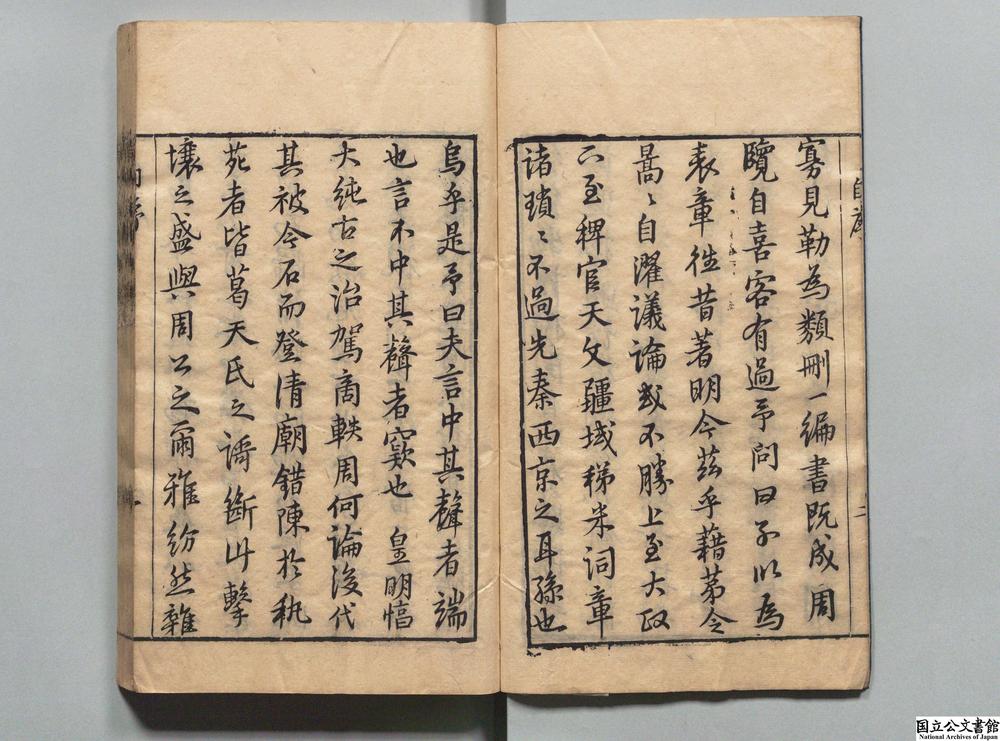 寡見勒為類刪一編書既成周
覽自喜客有過予問曰子以為
表章徃昔著明今茲乎藉苐令
暠〻自濯議論或不勝上至大政
下至稗官天文疆域稊米詞章
諸瑣〻不過先秦西京之耳孫也
烏乎是予曰夫言中其聲者端
也言不中其聲者窾也 皇明愊
大純古之治駕商軼周何論後代
其被金石而登清廟錯陳於執
苑者皆葛天氏之謌斷
壤之盛與周公之爾雅紛然雜
自序
二
国立公文書館
National Archives of Japan